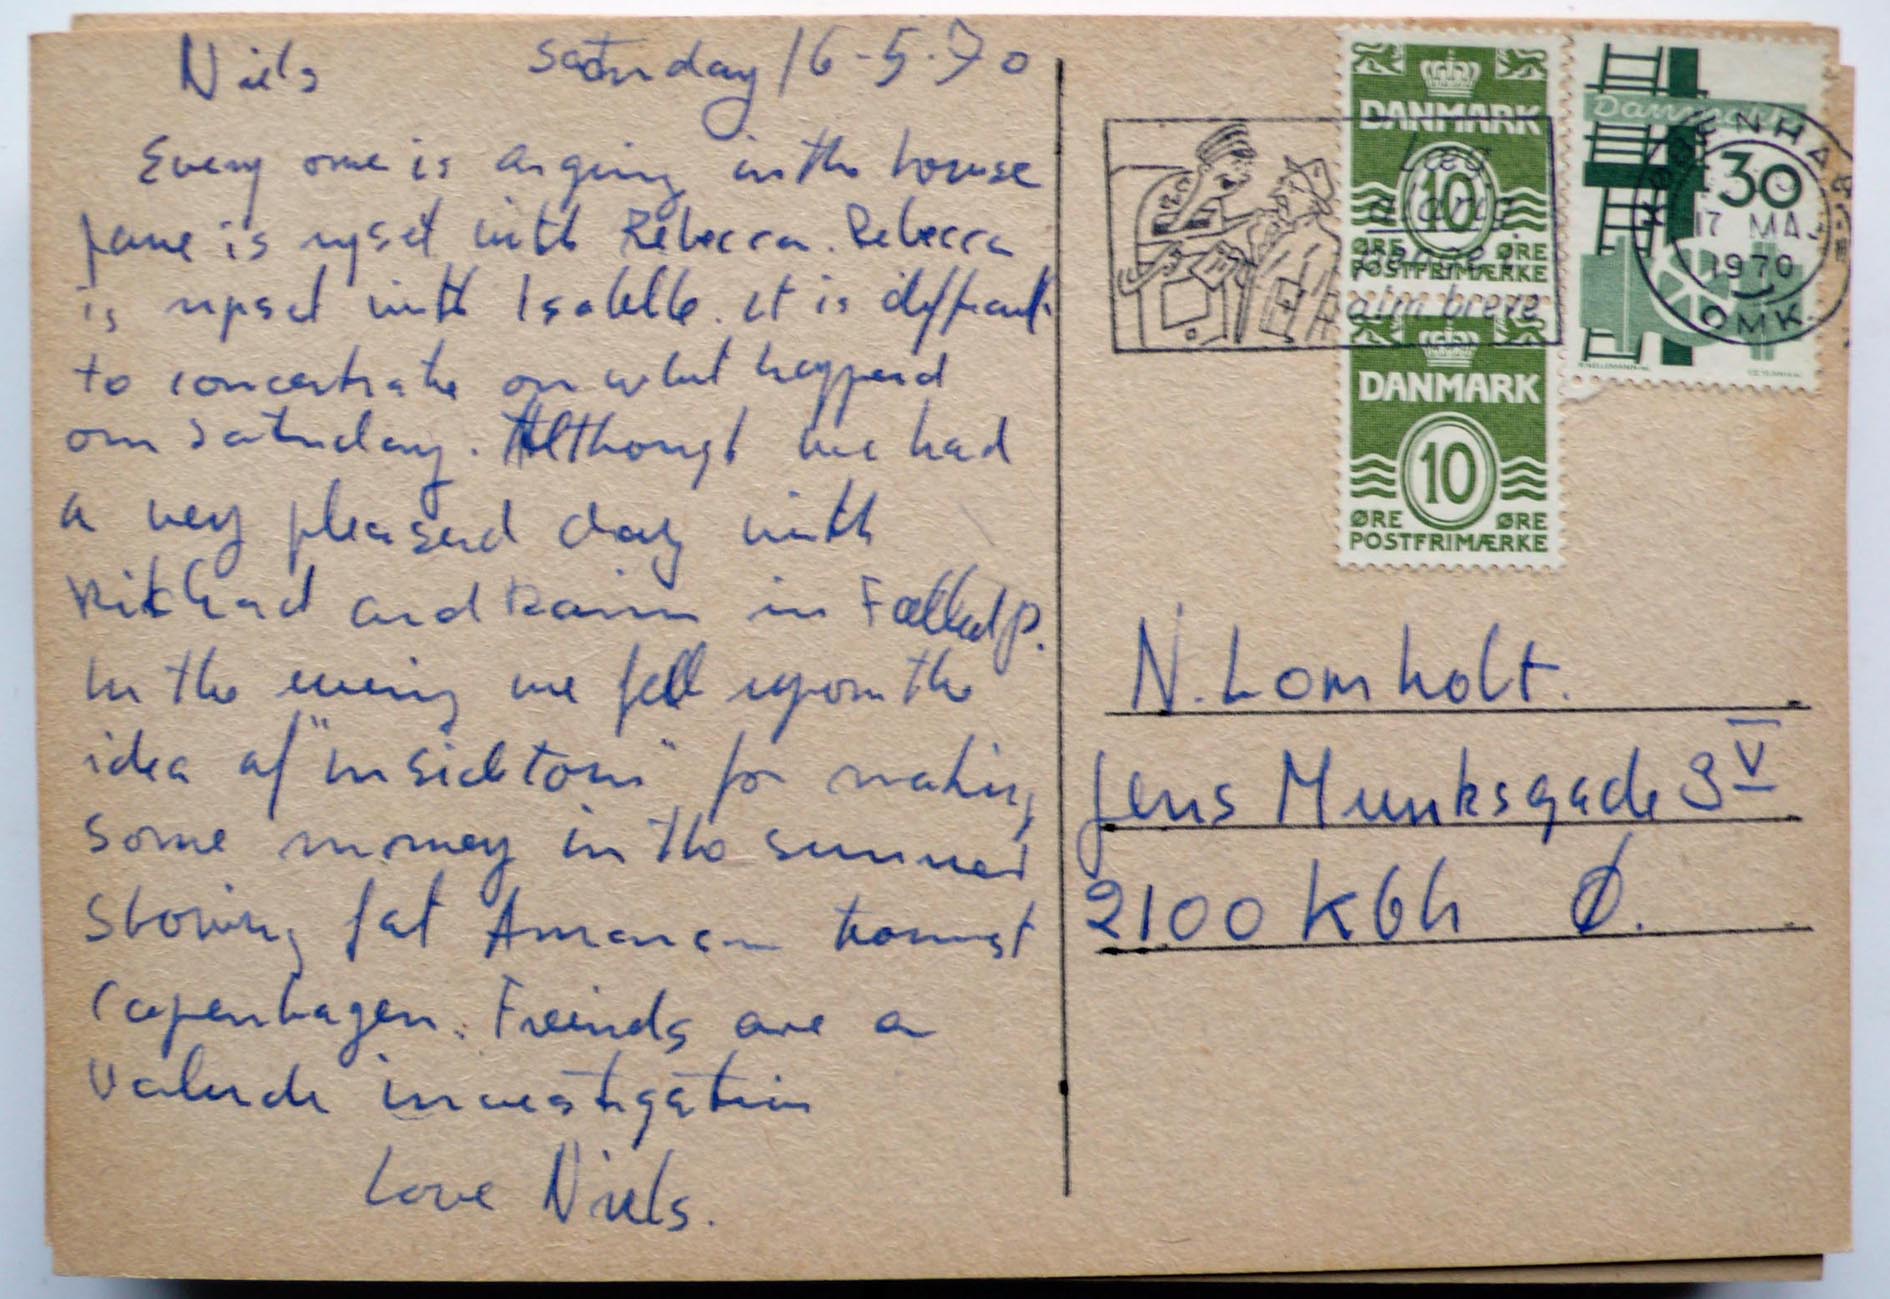 Niels Saturday 16-5-70
Every one is arguing in the house
Jane is upset with Rebecca. Rebecca
is upset with Isabelle. it is difficult
to concentrate on what happend
on Saturday. Althougt we had
a very pleasend day with
Richard and in Fælledp.
In the evening we fell upon the
idea of "insidetour" for making
some money in the summer
Showing fat American tourist
Copenhagen. Freinds are a
investigation
Love Niels.
DANMARK
10
ØRE ØRE
POSTFRIMÆRKE
DANMARK
10
ØRE ØRE
POSTFRIMÆRKE
Danmark
30
KØBENHAVN
17 MAJ
1970
OMK.
Læg
aldrig
penge i
alm breve
N. Lomholt.
Jens Munksgade 3 V
2100 Kbh Ø.